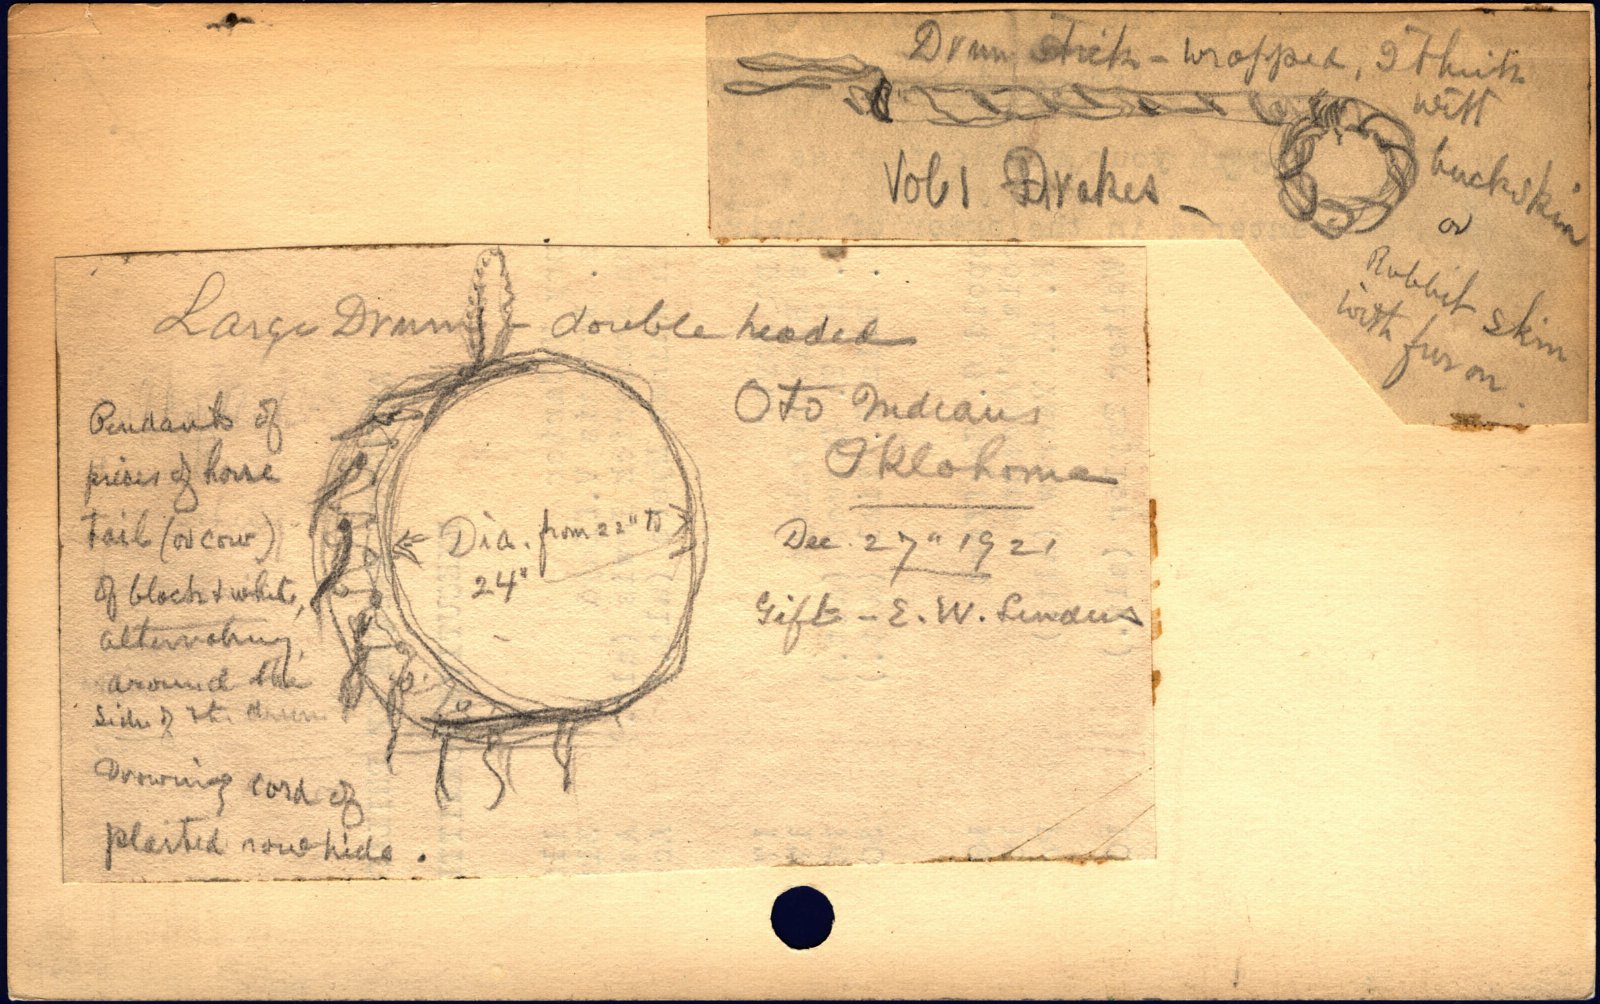 Drum stick - wrapped, I think
with
buckskin
or
Rabbit skin
with fur on.
Vol 1 Drakes -
Large Drum - double headed
Pendants of
pieces of horse
tail (or cow)
of black & white,
alternating,
around the
side of the drum
Drawing cord of
plaited raw hide.
Dia. from 22" to
24"
Oto Indians
Oklahoma
Dec. 27" 1921
Gift - E. W. Lenders